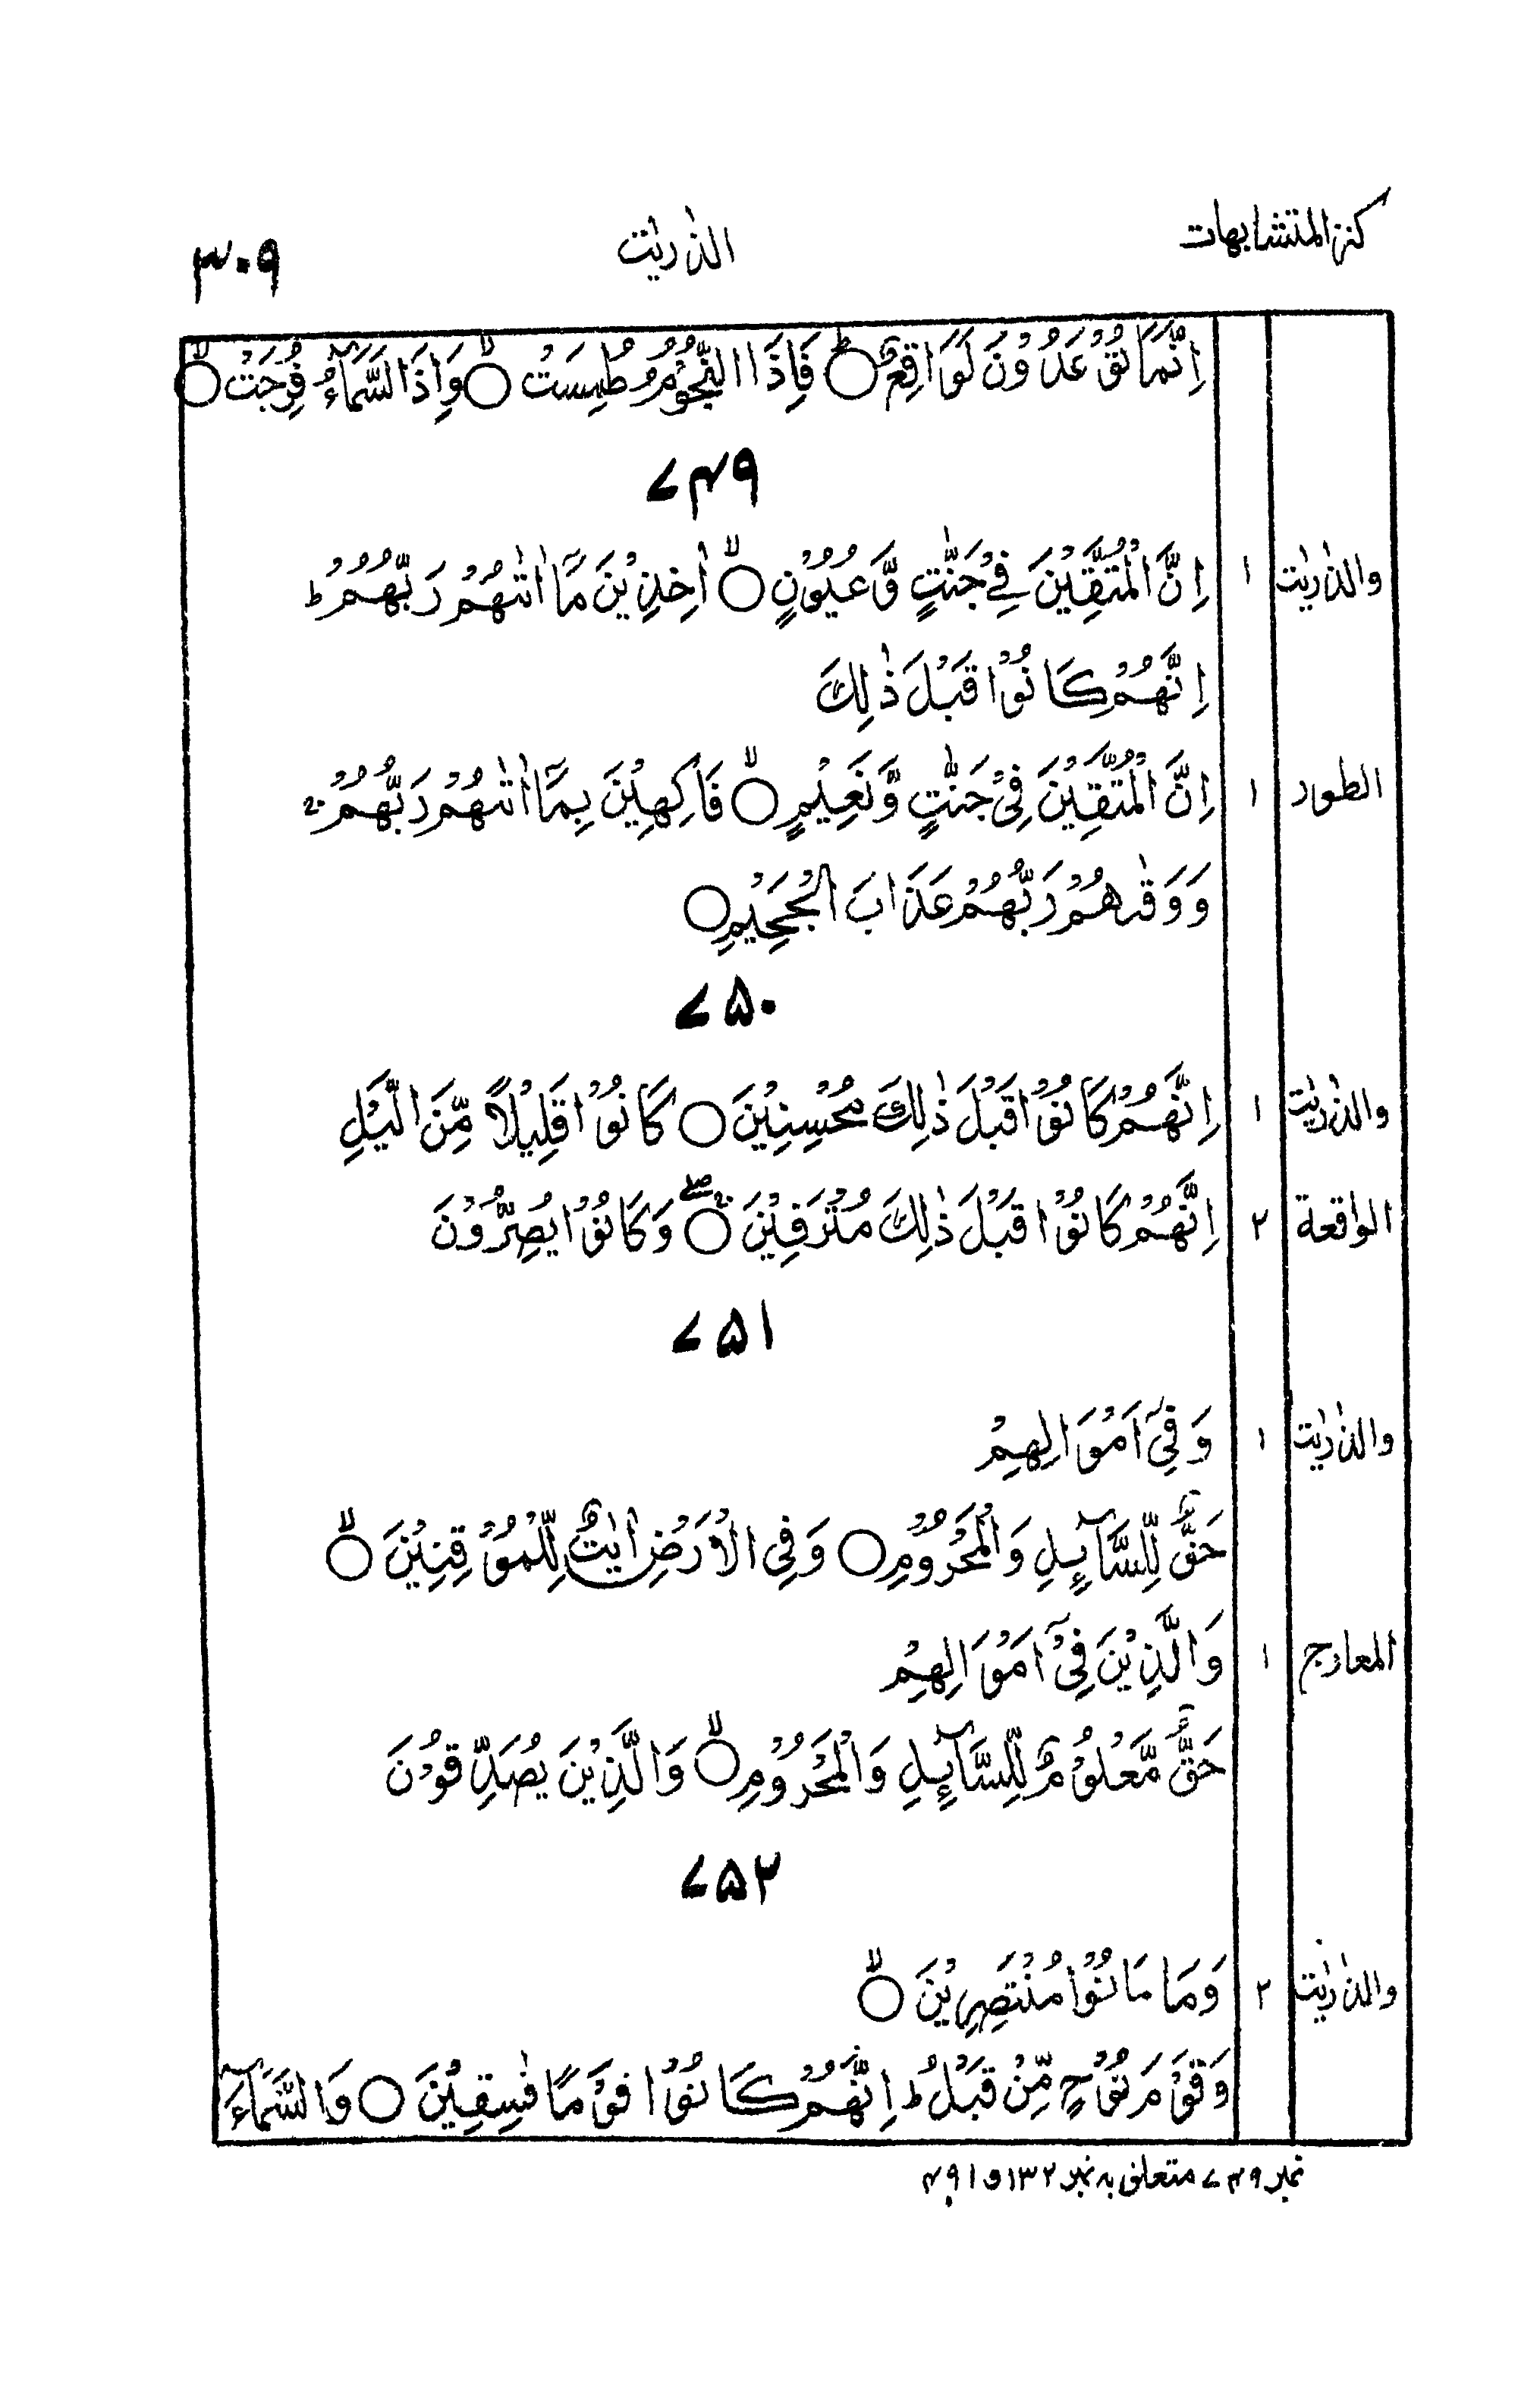 كنز المتشابهات الذٰریٰت ۳۰۹
اِنَّمَا تُوْعَدُوْنَ لَوَاقِعٌ ○ؕ فَاِذَا النُّجُوْمُ طُمِسَتْ ○ۙ وَاِذَا السَّمَآءُ فُرِجَتْ ○ۙ
۷۴۹
والذٰریٰت ۱ اِنَّ الْمُتَّقِيْنَ فِيْ جَنّٰتٍ وَّعُيُوْنٍ ○ۙ اٰخِذِيْنَ مَآ اٰتٰهُمْ رَبُّهُمْ ؕ
اِنَّهُمْ كَانُوْا قَبْلَ ذٰلِكَ
الطور ۱ اِنَّ الْمُتَّقِيْنَ فِيْ جَنّٰتٍ وَّنَعِيْمٍ ○ۙ فَاكِهِيْنَ بِمَآ اٰتٰهُمْ رَبُّهُمْ ۚ
وَوَقٰىهُمْ رَبُّهُمْ عَذَابَ الْجَحِيْمِ ○
۷۵۰
والذٰریٰت ۱ اِنَّهُمْ كَانُوْا قَبْلَ ذٰلِكَ مُحْسِنِيْنَ ○ كَانُوْا قَلِيْلًا مِّنَ الَّيْلِ
الواقعة ۲ اِنَّهُمْ كَانُوْا قَبْلَ ذٰلِكَ مُتْرَفِيْنَ ○ۚۖ وَكَانُوْا يُصِرُّوْنَ
۷۵۱
والذٰریٰت ۱ وَفِيْٓ اَمْوَالِهِمْ
حَقٌّ لِّلسَّآئِلِ وَالْمَحْرُوْمِ ○ وَفِي الْاَرْضِ اٰيٰتٌ لِّلْمُوْقِنِيْنَ ○ۙ
المعارج ۱ وَالَّذِيْنَ فِيْٓ اَمْوَالِهِمْ
حَقٌّ مَّعْلُوْمٌ لِّلسَّآئِلِ وَالْمَحْرُوْمِ ○ۙ وَالَّذِيْنَ يُصَدِّقُوْنَ
۷۵۲
والذٰریٰت ۲ وَمَا كَانُوْا مُنْتَصِرِيْنَ ○ۙ
وَقَوْمَ نُوْحٍ مِّنْ قَبْلُ ؕ اِنَّهُمْ كَانُوْا قَوْمًا فٰسِقِيْنَ ○ وَالسَّمَآءَ
نمبر ۷۴۹ متعلق به نمبر ۱۳۲ و ۴۹۱